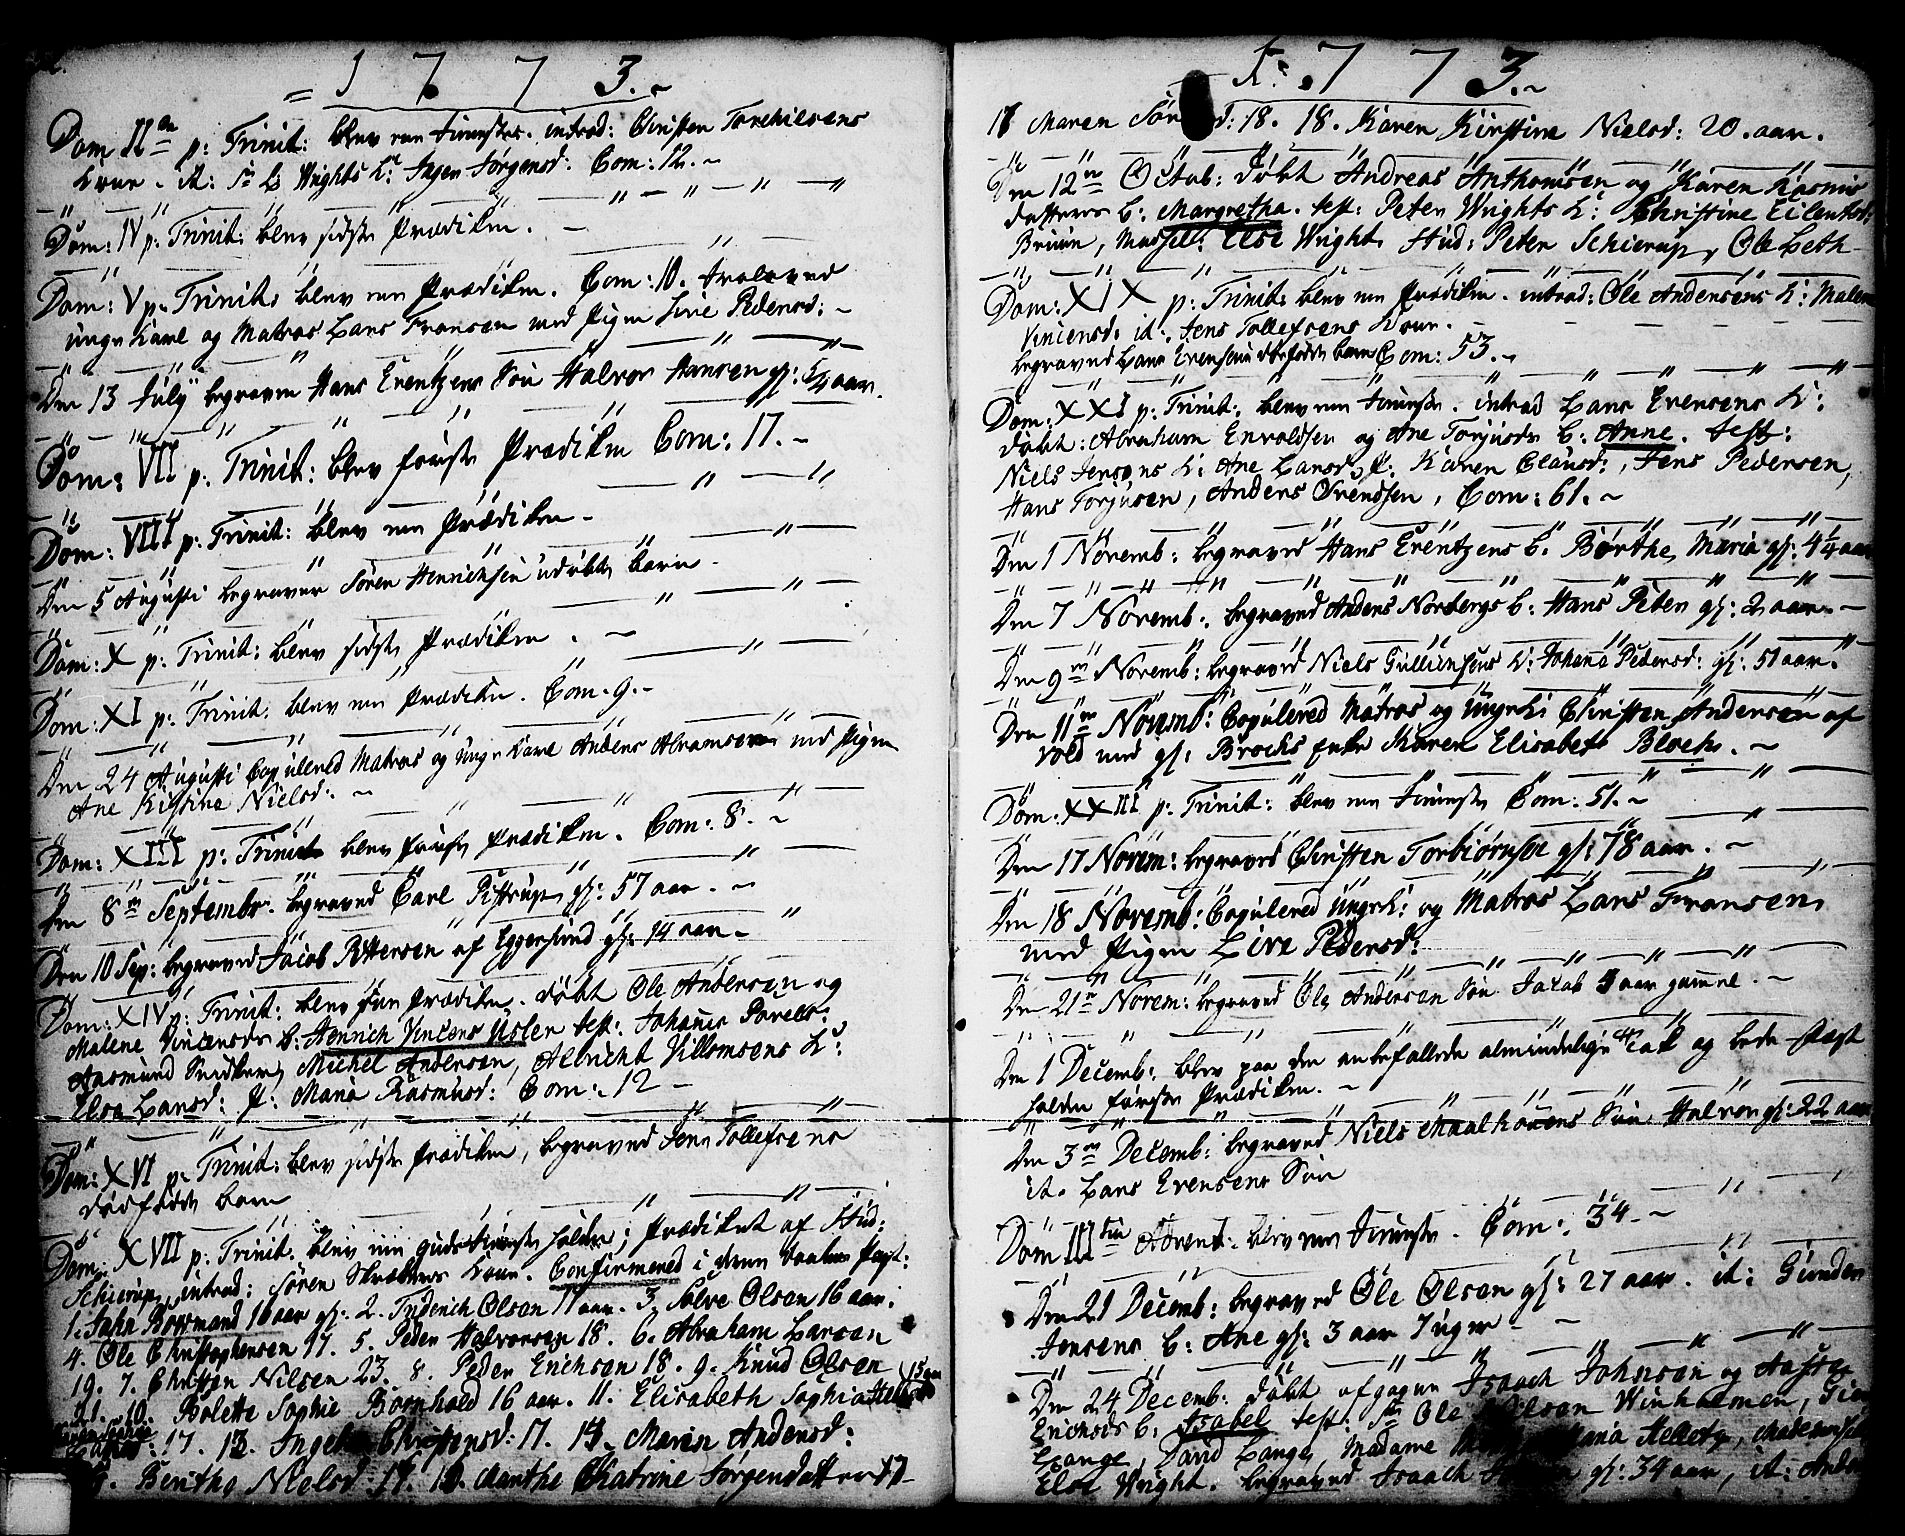 1773.
Dom II p: Trinit: blev ren tieniste. introd: Christen Torchilsens
Kone. it: Sr Ls Wrights K: Inger Jørgensd: Com: 12.
Dom: IV p: Trinit: blev sidste Prædiken.
Dom: V p: Trinit: blev ren Prædiken. Com: 10. troloved
unge Karl og Matros Lars Fransen med Pigen Live Pedersd:
Den 13 July begraven Hans Erentzens Søn Halvor Hansen gl: 5/4 aar.
Dom: VII p: Trinit: blev første Prædiken Com: 17.
Dom: VIII p: Trinit: blev ren Prædiken
Den 5 Augusti begraven Søren Henrichsens udøbte barn.
Dom: X p: Trinit: blev sidste Prædiken.
Dom: XI p: Trinit: blev ren Prædiken. Com. 9.
Den 24 Augusti Copulered Matros og unge Karl Anders Abramsen med Pigen
Ane Kistine Nielsd:
Dom: XIII p: Trinit: blev første Prædiken. Com: 8.
Den 8 Septembr. begraved Carl Pistrup gl: 57 aar.
Den 10 Sep: begraved Jacob Pettersen af Eggersund gl: 14 aar
Dom: XIV p: Trinit: blev Prædiken. døbt Ole Andersen og
Malene Vincensds b: Henrich Vincens Usler test: Johanes Povels:
Aasmund Snedker, Michel Andersen, Albricht Villomsens K:
Elsa Larsd: P: Maria Rasmusd: Com: 12
Dom: XVI p: Trinit: blev sidste Prædiken, begraved Jens Tollefsens
dødfødde barn
Dom: XVII p: Trinit. blev min gudstieneste holden; Prædiket af Stud:
Schierup, introd: Søren Skræders Kone. Confirmered i denne
1. John Bowmand 16 aar gl: 2. Friderich Olsen 17 aar. 3. Sølve Olsen 16 aar.
4. Ole Christophersen 17. 5. Peder Halvorsen 18. 6. Abraham Larsen
19. 7. Christen Nilsen 23. 8. Peder Erichsen 18. 9. Knud Olsen
21. 10. Bolette Sophie Bornhold 16 aar. 11. Elisabeth Sophia 15 aar
17. 13. Christensd: 17. 14. Maren Andersd:
Berthe Nielsd: 17. Marthe Chatrine Jørgensdatter 17
1773.
17 Maren 18. 18. Karen Kirstine Nielsd: 20. aar.
Den 12 Octob: døbt Andreas Anthonisen og Karen Rasmus
datters b: Margretha. test: Peter Wrights K: Christine Eilertsd:
Bruun, Madsell: Else Wright, Stud: Peter Schierup, Ole Leth
Dom: XIX p: Trinit: blev ren Prædiken. introd: Ole Andersens K: Malene
Vincensd: id: Jens Tollefsens Kone.
begraved Lars Evensens dødfødde barn Com: 53.
Dom: XXI p: Trinit: blev ren tieniste. introd Lars Evensens K:
døbt: Abraham Envoldsen og Ane Torjusds b: Anne. test:
Niels Jensens K: Ane Larsd, P: Karen Clausd:, Jens Pedersen,
Hans Torjusen, Anders Svendsen, Com: 61.
Den 1 Novemb: begraved Hans Erentzens b: Børthe Maria gl: 4 1/4 aar
Den 7 Novemb: begraved Anders Norbergs b: Hans Peter gl: 2 aar
Den 9 Novemb: begraved Niels Gullichsens K: Johana Pedersd: gl: 51 aar.
Den 11 Novemb: Copulered Matros og Ungk: Christen Andersen af
Vold med gl: Brochs Enke Karen Elisabeth Bloch.
Dom: XXIII p: Trinit: blev ren tieniste Com: 51.
Den 17 Novem: begraved Christen Torbiørnsen gl: 78 aar.
Den 18 Novemb: Copulered Ungk: og Matros Lars Fransen
med Pigen Live Pedersd:
Den 21 Novem: begraved Ole Andersen Søn Jacob 5 aar gamle.
Den 1 Decemb: blev paa den anbefallede almindelige tak og bede-fæst
holden første Prædiken.
Den 3 Decemb: begraved Niels Maalhouens Søn Halvor gl: 22 aar
it. Lars Evensens Søn
Dom III Advent. blev ren tieniste. Com: 34.
Den 21 Decemb: begraved Ole Olsen gl: 27 aar. it: Gunder
Jensens b: Ane gl: 3 aar 7 uger
Den 24 Decemb: døbt afgagne Isaach Johnsen og Aaste
Erichsds b: Isabel test: Ole Nilsen Winholmen,
Lange, David Lange, Madame Maria Kellety,
Else Wright. begraved Isaach gl: 34 aar, it: Anders